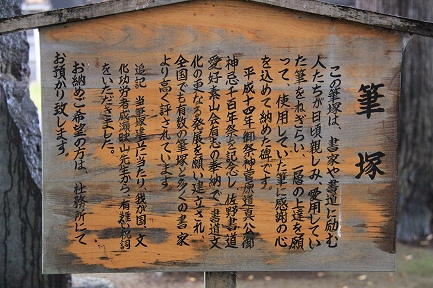 筆塚
この筆塚は、書家や書道に励む
人たちが日頃親しみ、愛用してい
た筆をねぎらい、一層の上達を願
って、使用していた筆に感謝の心
を込めて納めた碑です。
平成十四年御祭神菅原道真公御
神忌千百年祭を記念し、佐野書道
愛好泰山会有志の奉納で、書道文
化の更なる発展を願い建立され
全国でも有数の筆塚と多くの書家
より高く評されています。
追記 当筆塚建立に当たり、我が国、文
化功労者成瀬映山先生から、有難い祝詞
をいただきました。
お納めご希望の方は、社務所にて
お預かり致します。